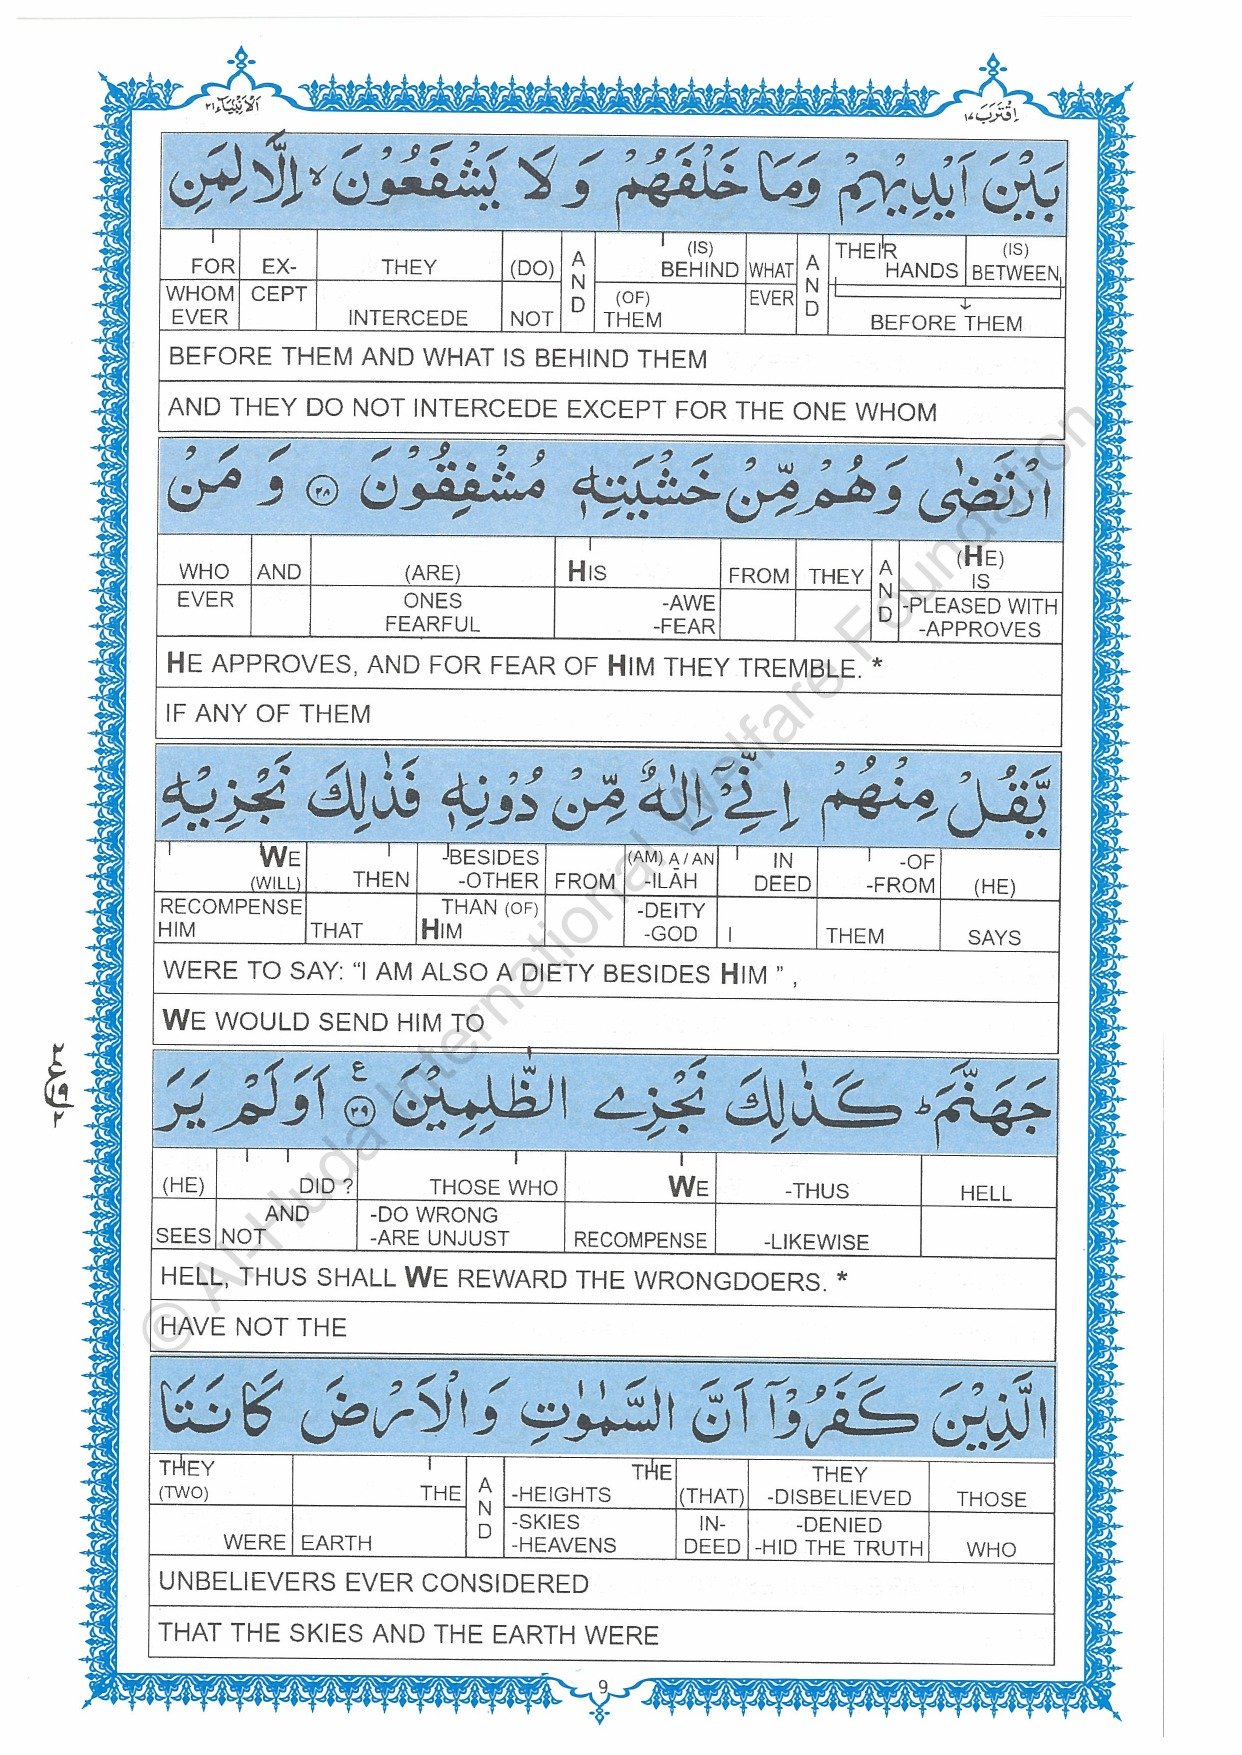 الانبیاء ۲۱
اقترب ۱۷
بَيْنَ اَيْدِيْهِمْ وَمَا خَلْفَهُمْ وَ لَا يَشْفَعُوْنَ ۙ اِلَّا لِمَنِ
FOR EX- THEY (DO) A N D (IS) BEHIND WHAT A N D THEIR HANDS (IS) BETWEEN
WHOM EVER CEPT INTERCEDE NOT (OF) THEM EVER BEFORE THEM
BEFORE THEM AND WHAT IS BEHIND THEM
AND THEY DO NOT INTERCEDE EXCEPT FOR THE ONE WHOM
ارْتَضٰى وَهُمْ مِّنْ خَشْيَتِهٖ مُشْفِقُوْنَ ۲۸ وَ مَنْ
WHO AND (ARE) HIS FROM THEY A N D (HE) IS
EVER ONES FEARFUL -AWE -FEAR -PLEASED WITH -APPROVES
HE APPROVES, AND FOR FEAR OF HIM THEY TREMBLE. *
IF ANY OF THEM
يَّقُلْ مِنْهُمْ اِنِّيْٓ اِلٰهٌ مِّنْ دُوْنِهٖ فَذٰلِكَ نَجْزِيْهِ
WE (WILL) THEN -BESIDES -OTHER FROM (AM) A / AN -ILĀH IN DEED -OF -FROM (HE)
RECOMPENSE HIM THAT THAN (OF) HIM -DEITY -GOD I THEM SAYS
WERE TO SAY: “I AM ALSO A DIETY BESIDES HIM ” ,
WE WOULD SEND HIM TO
جَهَنَّمَ ؕ كَذٰلِكَ نَجْزِي الظّٰلِمِيْنَ ۲۹ ع اَوَلَمْ يَرَ
(HE) DID ? THOSE WHO WE -THUS HELL
SEES NOT AND -DO WRONG -ARE UNJUST RECOMPENSE -LIKEWISE
HELL, THUS SHALL WE REWARD THE WRONGDOERS. *
HAVE NOT THE
الَّذِيْنَ كَفَرُوْٓا اَنَّ السَّمٰوٰتِ وَالْاَرْضَ كَانَتَا
THEY (TWO) THE A N D THE -HEIGHTS (THAT) THEY -DISBELIEVED THOSE
WERE EARTH -SKIES -HEAVENS IN- DEED -DENIED -HID THE TRUTH WHO
UNBELIEVERS EVER CONSIDERED
THAT THE SKIES AND THE EARTH WERE
9
۲
ع
۱۹
۲
© Al-Huda International Welfare Foundation